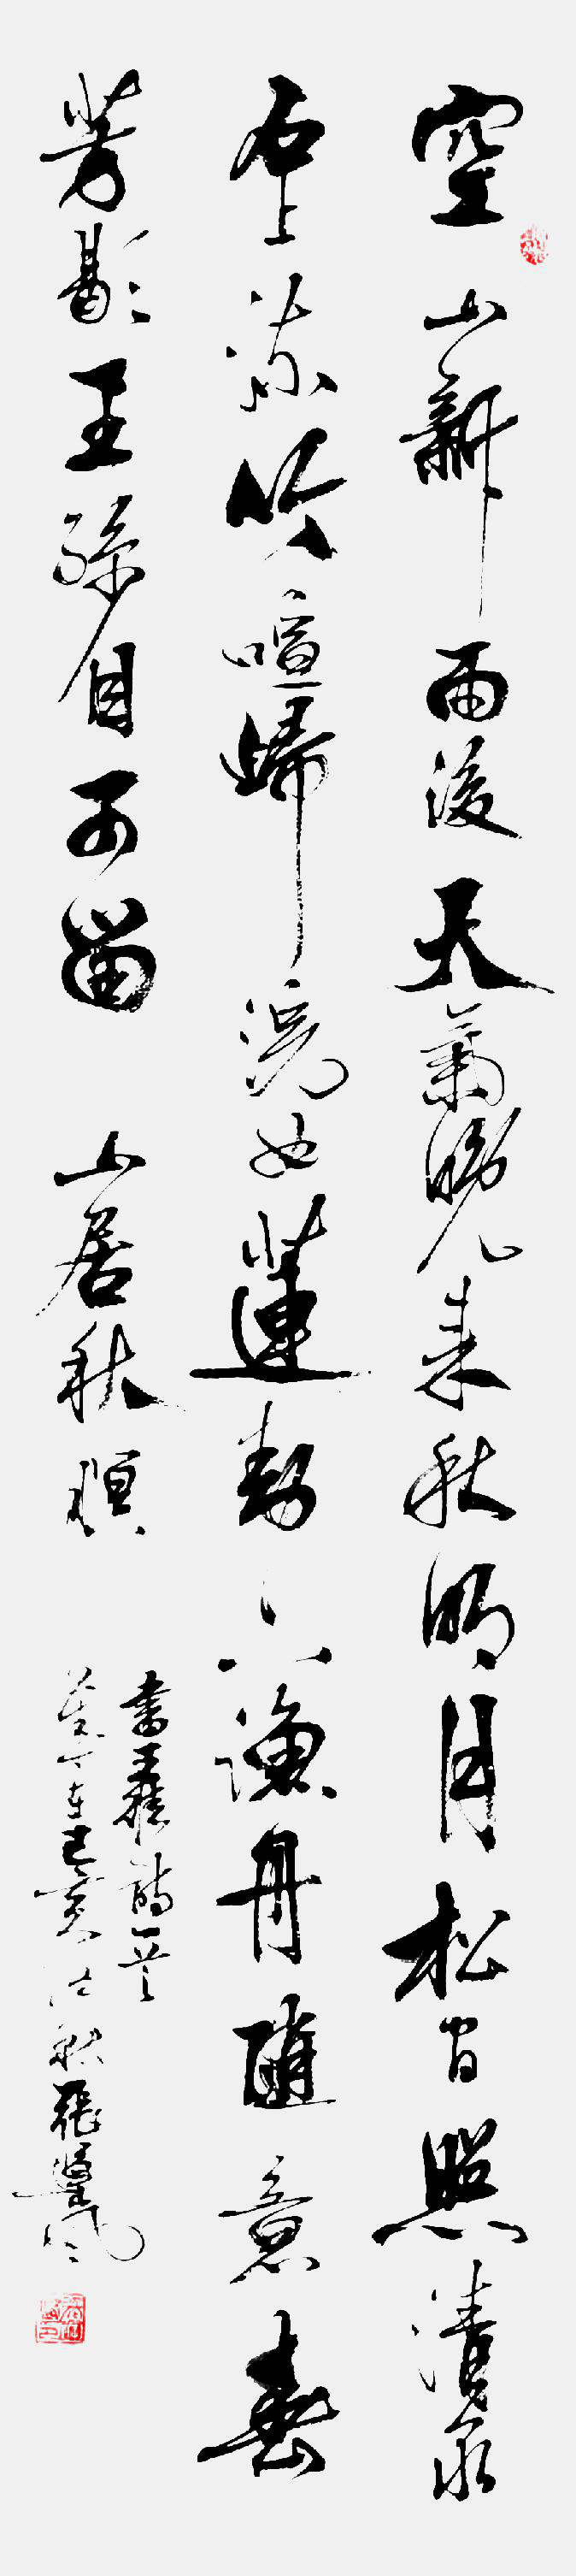 空山新雨後天氣晚來秋明月松間照清泉
石上流竹喧歸浣女蓮動下漁舟隨意春
芳歇王孫自可留 山居秋暝
書王維詩一首
在己亥 秋張